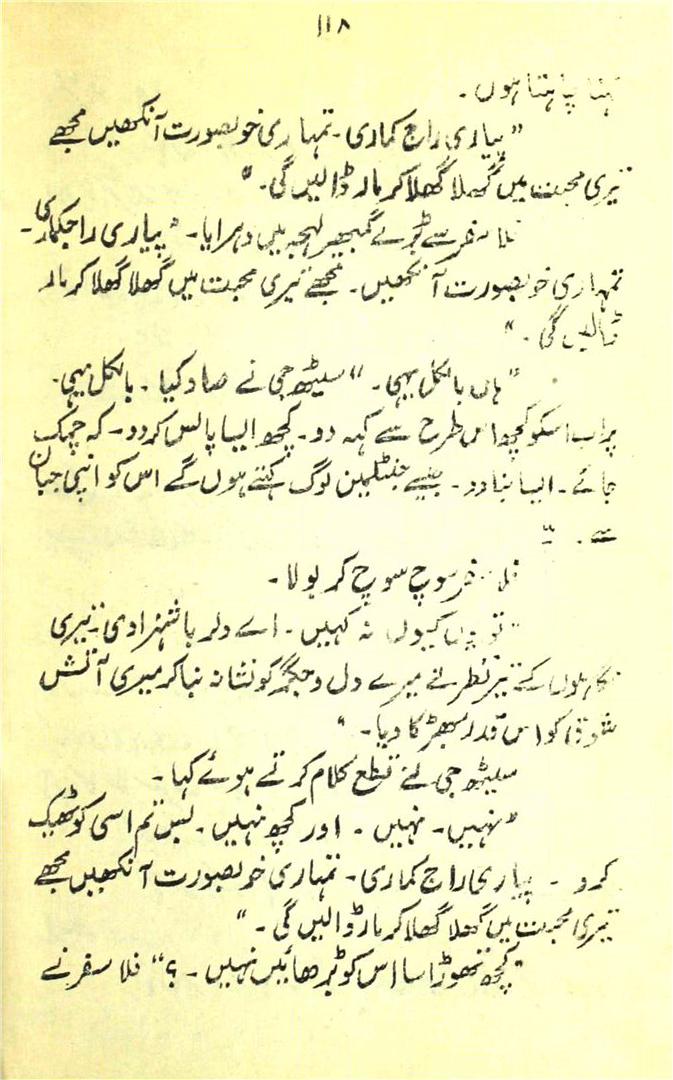 ۱۱۸
کہنا چاہتا ہوں۔
"پیاری راج کماری۔ تمہاری خوبصورت آنکھیں مجھے
تیری محبت میں گھلا گھلا کر مار ڈالیں گی۔"
فلاسفر سے بڑے گمبھیر لہجہ میں دہرایا۔ "پیاری راجکماری۔
تمہاری خوبصورت آنکھیں۔ مجھے تیری محبت میں گھلا گھلا کر مار
ڈالیں گی۔"
"ہاں بالکل یہی۔" سیٹھ جی نے صاد کیا۔ بالکل یہی۔
پر اب اسکو کچھ اس طرح سے کہہ دو۔ کچھ ایسا پالس کر دو۔ کہ چمک
جائے۔ ایسا بنا دو۔ جیسے جنٹلمین لوگ کہتے ہوں گے اس کو اپنی جبان
سے۔"
فلاسفر سوچ سوچ کر بولا۔
"تو یوں کیوں نہ کہیں۔ اے دلربا شہزادی۔ تیری
نگاہوں کے تیر نظر نے میرے دل و جگر کو نشانہ بنا کر میری آتش
شوق کو اس قدر بھڑکا دیا۔"
سیٹھ جی نے قطع کلام کرتے ہوئے کہا۔
"نہیں۔ نہیں۔ اور کچھ نہیں۔ بس تم اسی کو ٹھیک
کرو۔ پیاری راج کماری۔ تمہاری خوبصورت آنکھیں مجھے
تیری محبت میں گھلا گھلا کر مار ڈالیں گی۔"
"کچھ تھوڑا سا اس کو بڑھائیں نہیں۔؟" فلاسفر نے